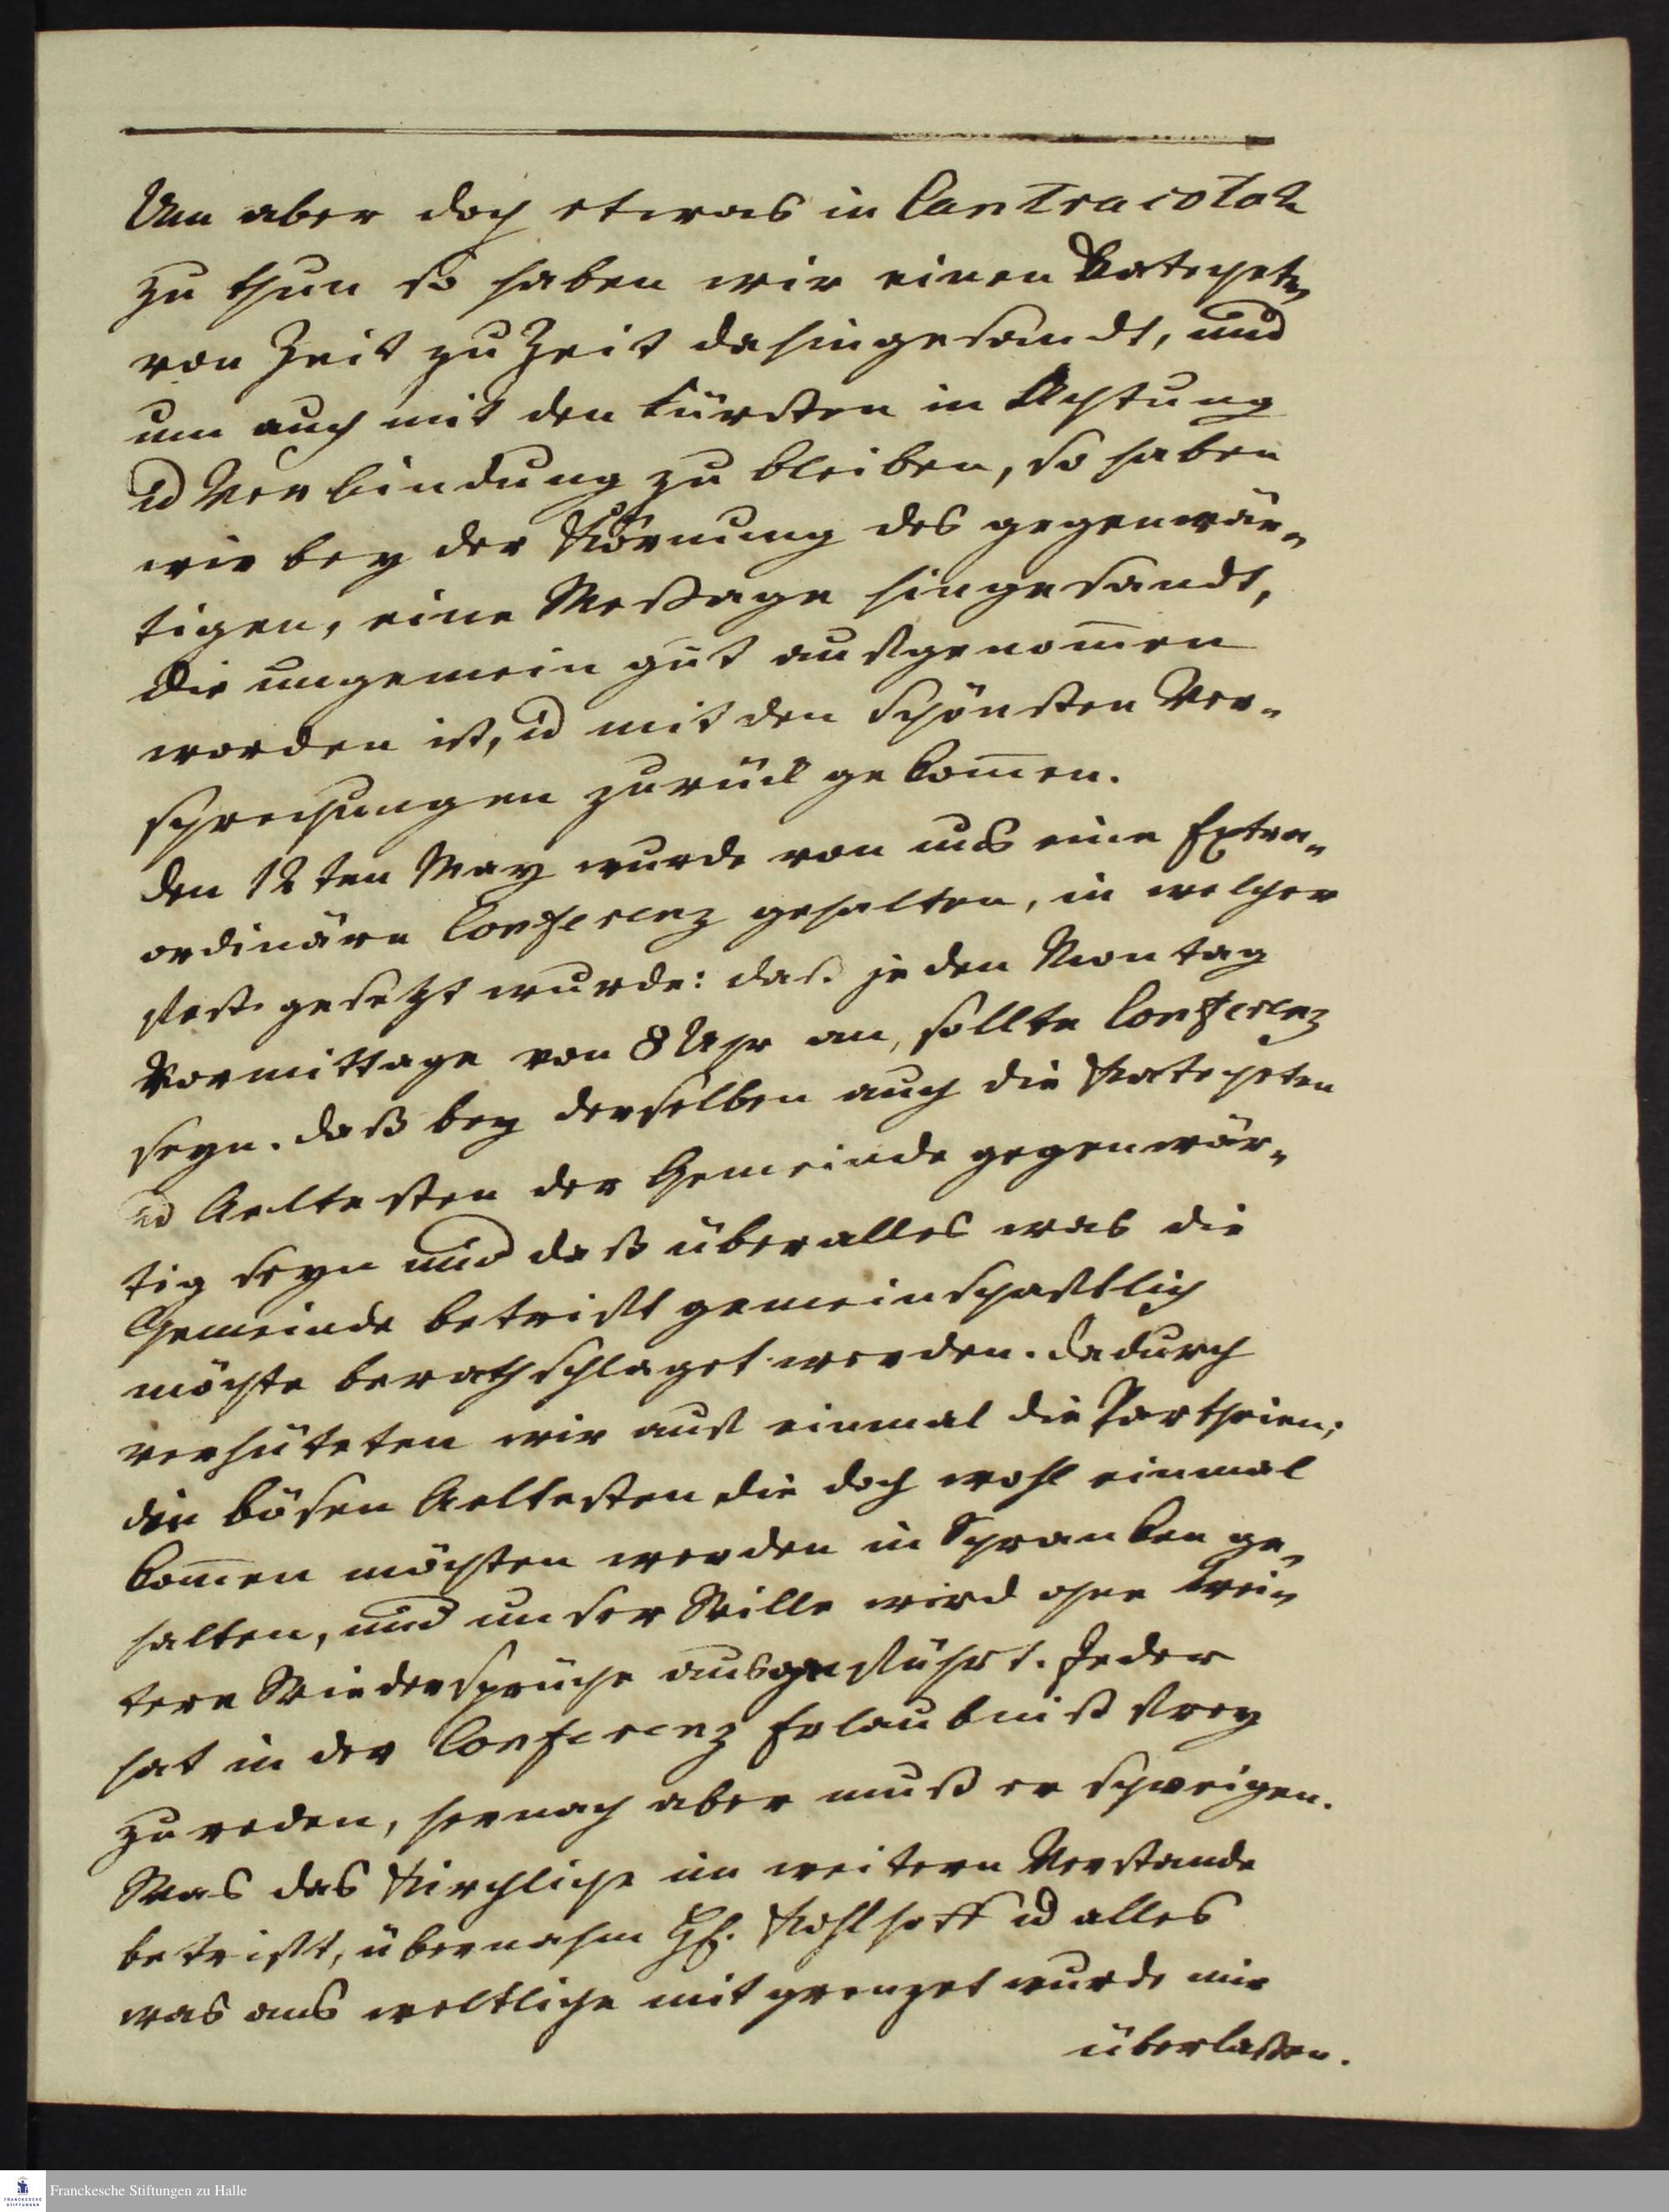 Um aber doch etwas in Contracotah
zu thun so haben wir einen Catecheten
von Zeit zu Zeit dahingesandt, und
um auch mit den Fürsten in Achtung
ud Verbindung zu bleiben, so haben
wir bey der Krönung des gegenwär-
tigen, eine Message hingesandt,
die ungemein gut aufgenom̄en
worden ist, ud mit den schönsten Ver-
sprechungen zurück gekom̄en.
den 12ten May wurde von uns eine Extra-
ordinäre Conferenz gehalten, in welcher
fest gesetzt wurde: daß jeden Montag
Vormittage von 8 Uhr an, sollte Conferenz
seyn. daß bey derselben auch die Katecheten
ud Aeltesten der Gemeinde gegenwär-
tig seyn und daß über alles was die
Gemeinde betrifft gemeinschaftlich
möchte berathschlaget werden. dadurch
verhüteten wir auf einmal die Partheien;
die bösen Aeltesten die doch wohl einmal
kom̄en möchten werden in Schranken ge-
halten, und unser Wille wird ohne wei-
tere Wiedersprüche ausgeführt. Jeder
hat in der Conferenz Erlaubniß frey
zu reden, hernach aber muß er schweigen.
Was das Kirchliche im weitern Verstande
betrifft, übernahm H. Kohlhoff ud alles
was ans weltliche mit grenzet wurde mir
überlaßen.
Franckesche Stiftungen zu Halle
FRANCKESCHE
STIFTUNGEN